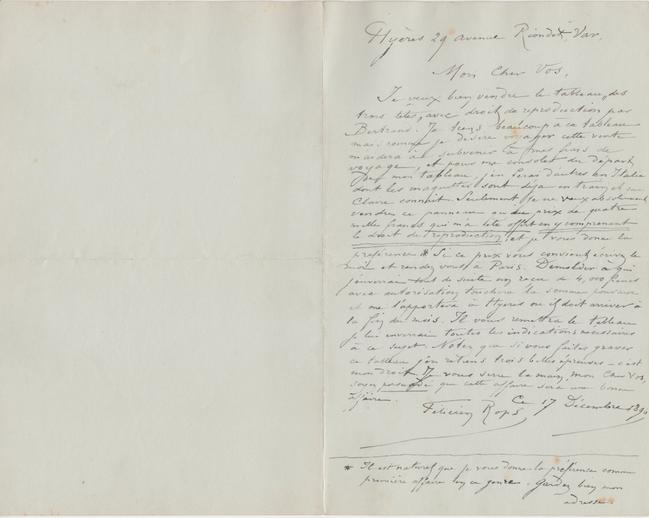 Hyères 29 avenue Riondet, Var.
Mon Cher Vos,
Je veux bien vendre le tableau des
trois têtes, avec droit de reproduction par
Bertrand. Je tiens beaucoup à ce tableau
mais comme je désire voyager cette vente
m'aidera à subvenir à mes frais de
voyage, et pour me consoler du départ
de mon tableau, j'en ferai d'autres en Italie
dont les maquettes sont déjà en train et que
Claire connait. Seulement je ne veux absolument
vendre ce panneau qu'au prix de quatre
mille francs qui m'a été offert en y comprenant
le droit de reproduction et je vous donne la
préférence * Si ce prix vous convient écrivez le
moi et rendez vous à Paris. Demolder à qui
j'enverrai tout de suite mon reçu de 4,000 francs
avec autorisation touchera la somme
et me l'apportera à Hyères où il doit arriver à
la fin du mois. Il vous remettra le tableau
je lui enverrai toutes les indications nécessaires
à ce sujet. Notez que si vous faites graver
ce tableau j'en retiens trois belles épreuves - c'est
mon droit. Je vous serre la main, mon Cher Vos,
soyez persuadé que cette affaire sera une bonne
affaire.
Ce 17 Décembre
Félicien Rops
* Il est naturel que je vous donne la préférence comme
première affaire en ce genre. Gardez bien mon
adresse